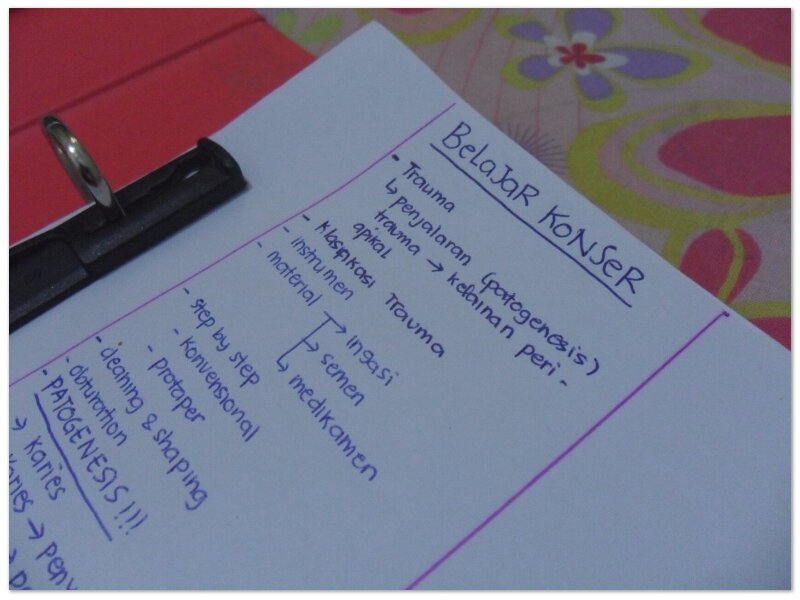 BELAJAR KONSER
- Trauma
↳ penjalaran (patogenesis)
trauma → kelainan peri-
apikal
- Klasifikasi Trauma
- instrumen
- material → irigasi
→ semen
↳ medikamen
- step by step
- konvensional
- protaper
- cleaning & shaping
- obturation
- PATOGENESIS!!!
→ karies
→